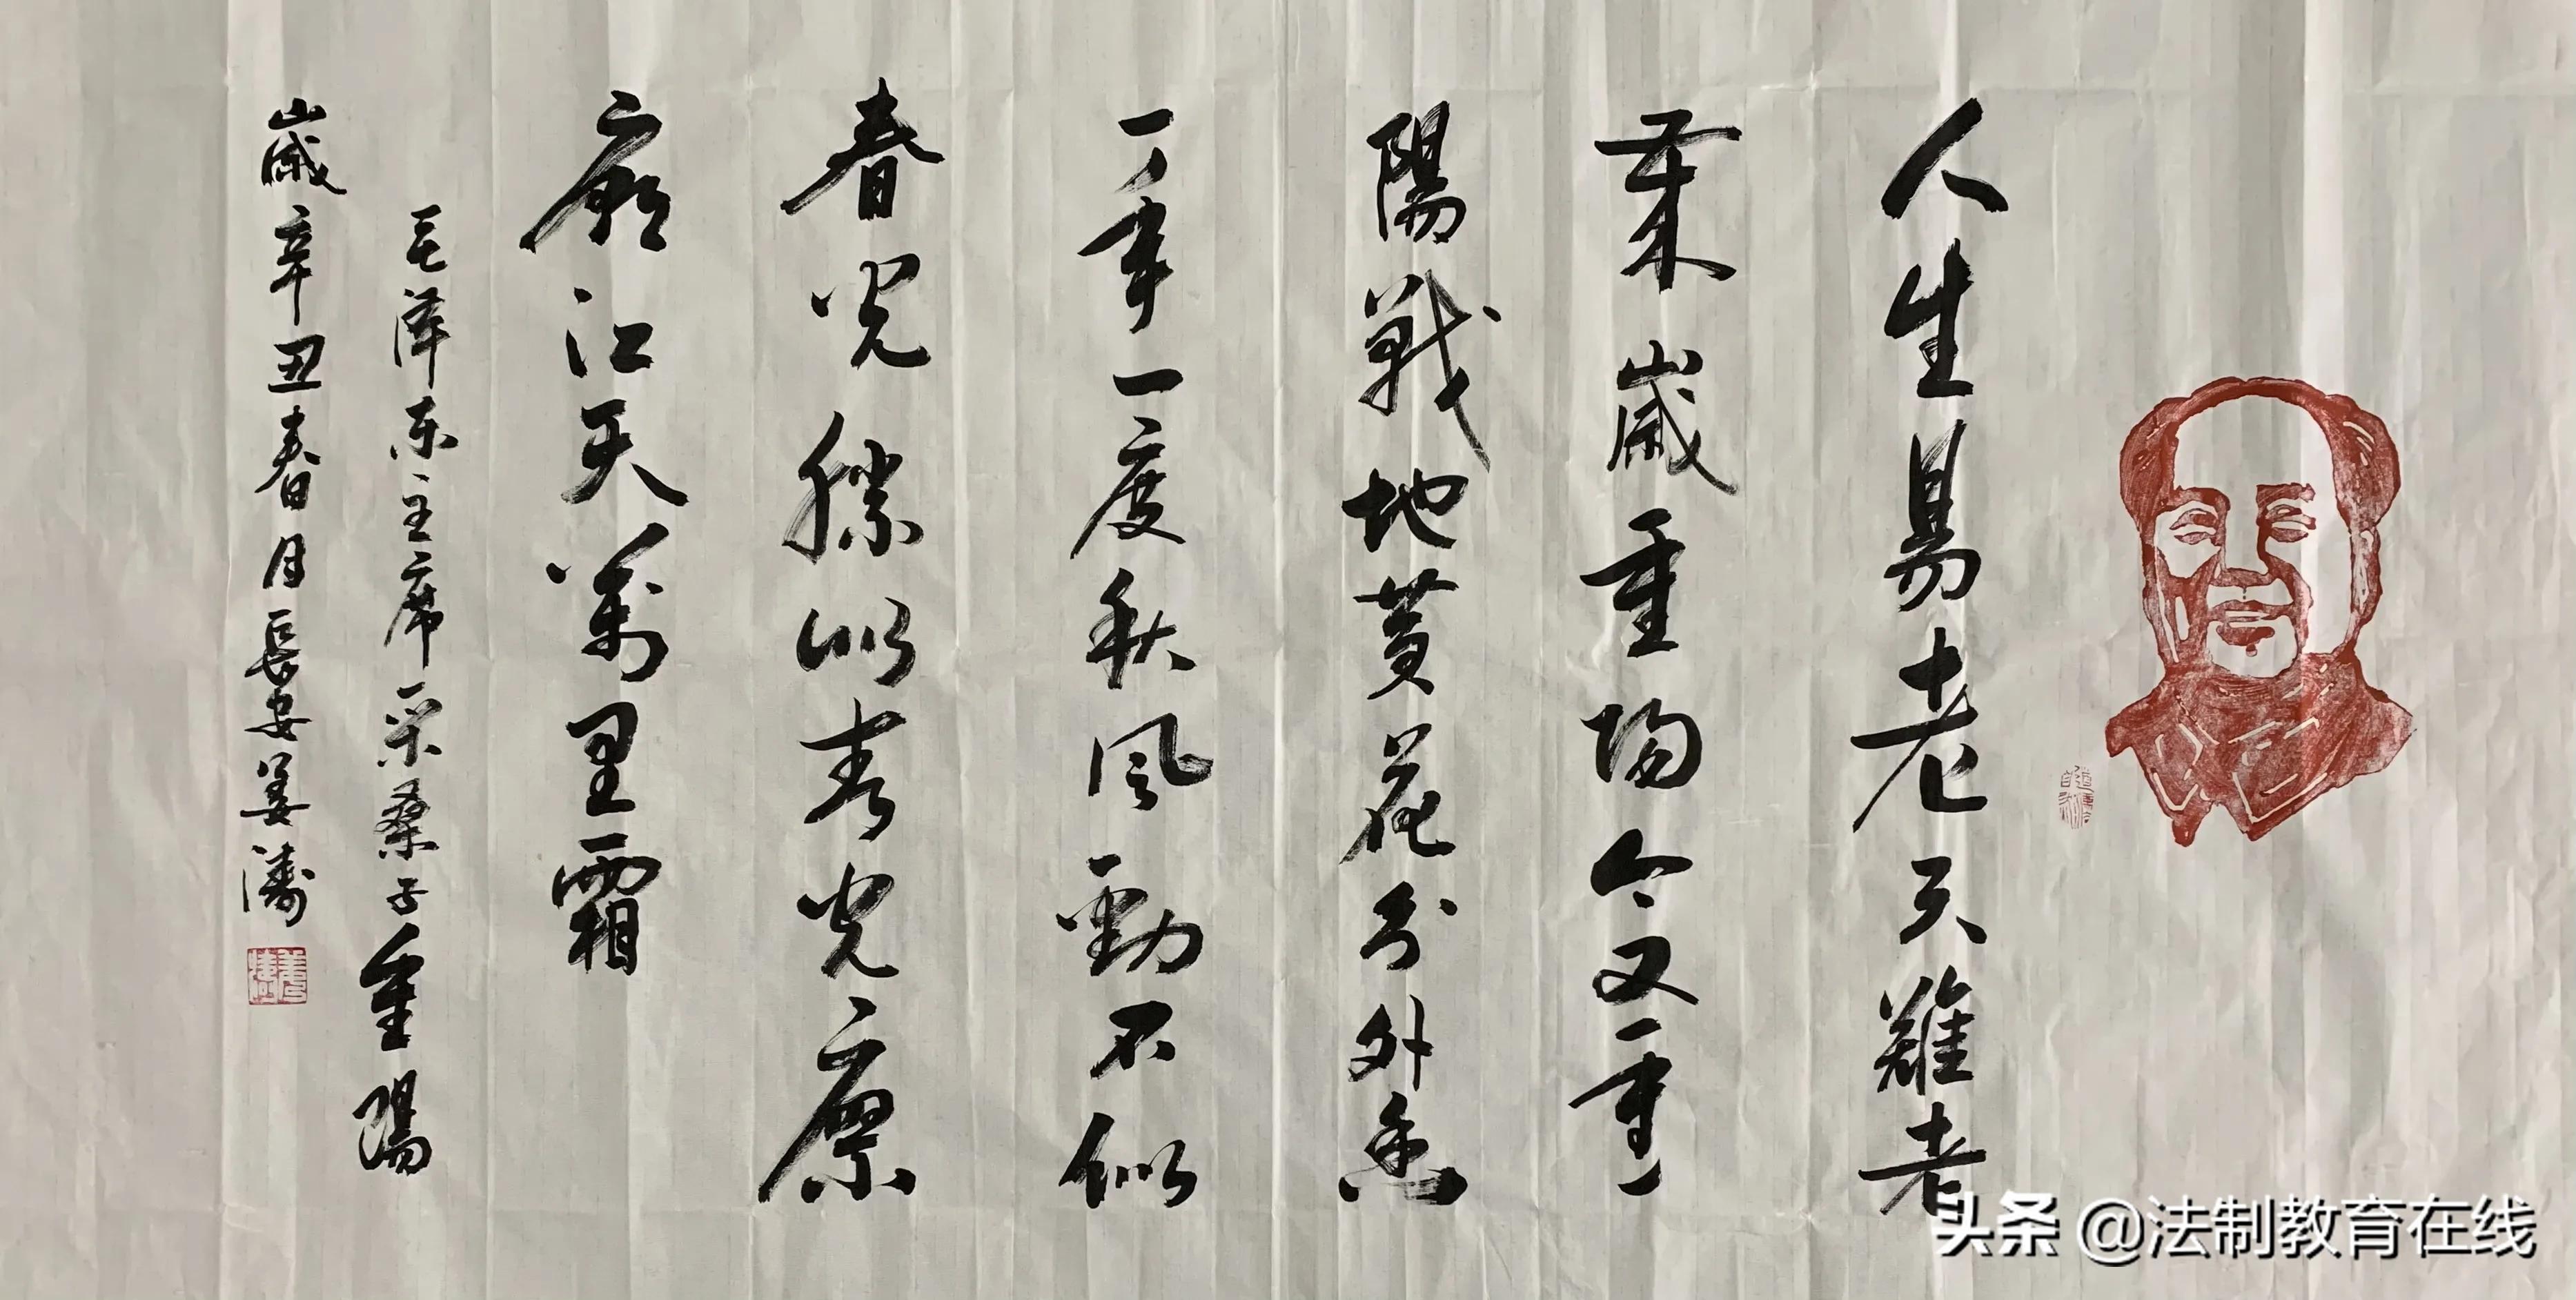 人生易老天難老
歲歲重陽今又重
陽戰地黃花分外香
一年一度秋風勁不似
春光勝似春光寥
廓江天萬里霜
毛泽东主席采桑子重陽
歲辛丑春月長安姜濤
头条 @法制教育在线